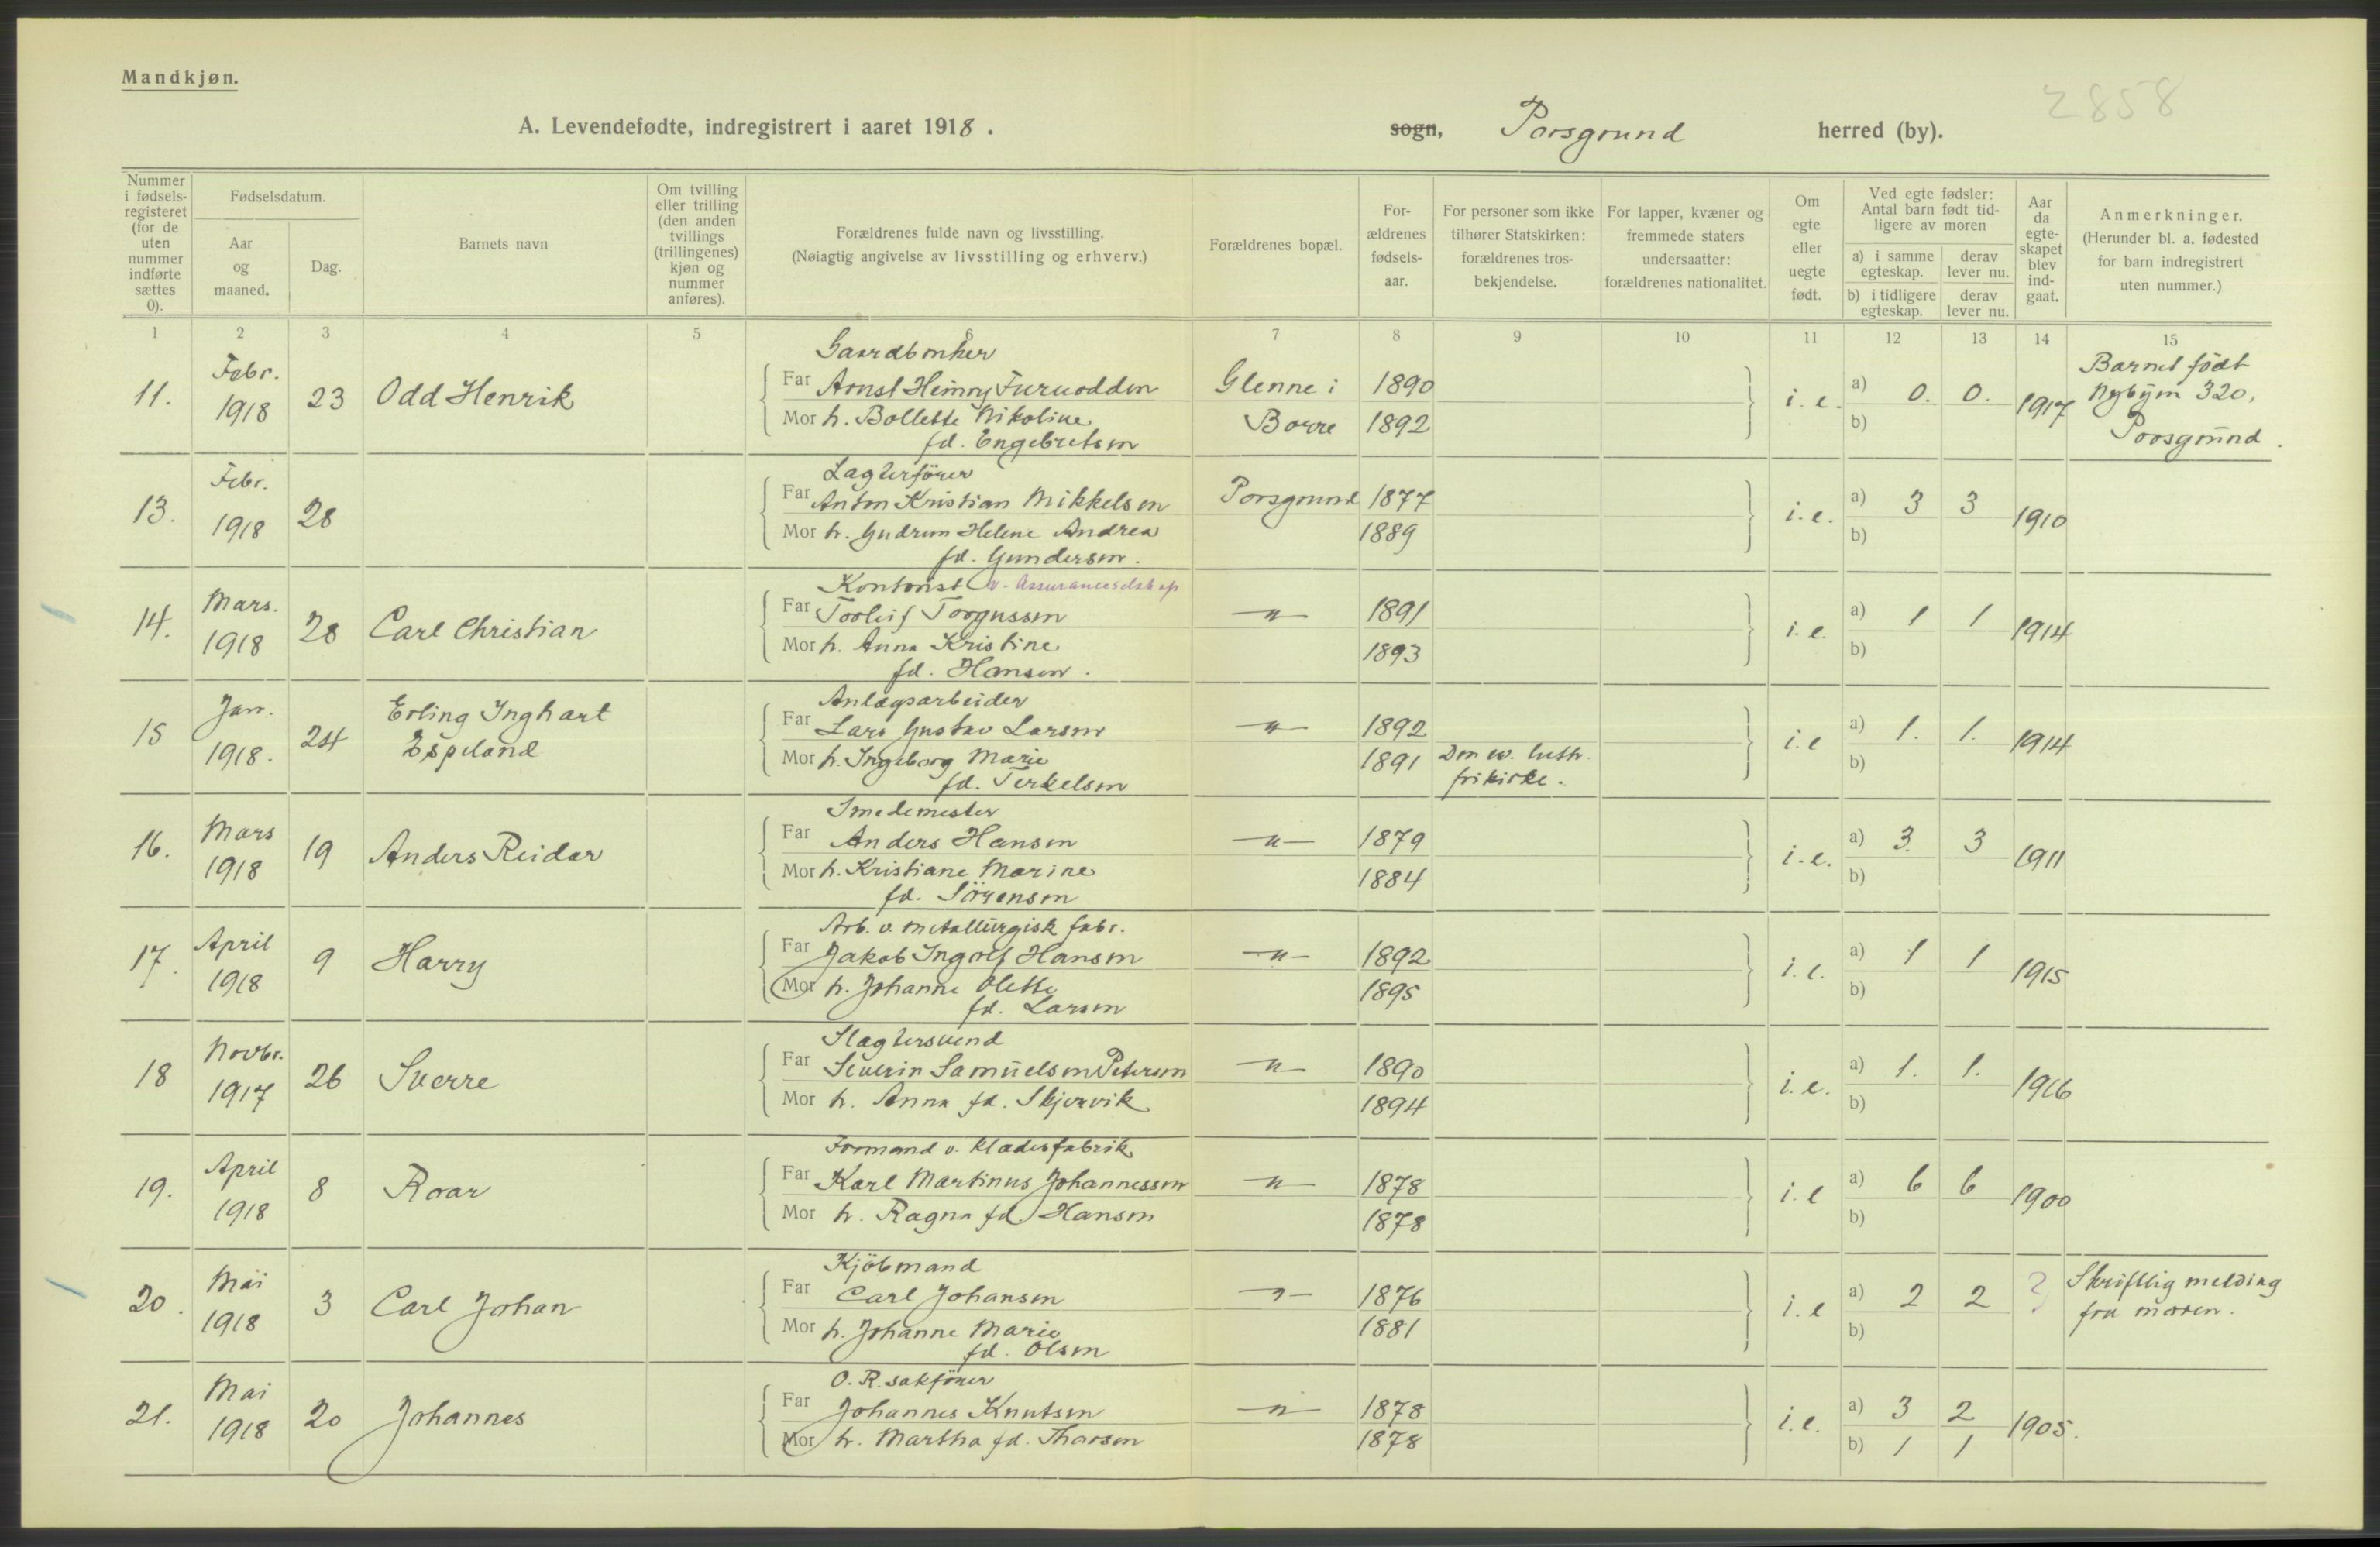 Mandkjøn.
2858
A. Levendefødte, indregistrert i aaret 1918.
sogn, Porsgrund herred (by).
Nummer i fødsels-registeret (for de uten nummer indførte sættes 0).
Fødselsdatum.
Aar og maaned.
Dag.
Barnets navn
Om tvilling eller trilling (den anden tvillings (trillingenes) kjøn og nummer anføres).
Forældrenes fulde navn og livsstilling.
(Nøiagtig angivelse av livsstilling og erhverv.)
Forældrenes bopæl.
For-ældrenes fødsels-aar.
For personer som ikke tilhører Statskirken: forældrenes tros-bekjendelse.
For lapper, kvæner og fremmede staters undersaatter: forældrenes nationalitet.
Om egte eller uegte født.
Ved egte fødsler: Antal barn født tid-ligere av moren
a) i samme egteskap.
derav lever nu.
b) i tidligere egteskap.
derav lever nu.
Aar da egte-skapet blev ind-gaat.
Anmerkninger.
(Herunder bl. a. fødested for barn indregistrert uten nummer.)
1 2 3 4 5 6 7 8 9 10 11 12 13 14 15
Gaardbruker
11. Febr. 1918 23 Odd Henrik
Far Arnst Henry Furuodden Glenne i 1890
Mor h. Bollette Nikoline Borre 1892
fd. Engebretsen
i. e. a) 0. 0. b) 1917
Barnet født
Nybyen 320,
Porsgrund.
Lagterfører
13. Febr. 1918 28
Far Anton Kristian Mikkelsen Porsgrund 1877
Mor h. Gudrun Helene Andrea 1889
fd. Gundersen.
i. e. a) 3 3 b) 1910
Kontorist v. Assuranceselskap
14. Mars. 1918 28 Carl Christian
Far Torleif Torgussen –"– 1891
Mor h. Anna Kristine 1893
fd. Hansen.
i. e. a) 1 1 b) 1914
Anlægsarbeider
15 Jan. 1918. 24 Erling Inghart
Espeland
Far Lars Gustav Larsen –"– 1892
Mor h. Ingeborg Marie 1891 Den ev. luth.
fd. Terkelsen frikirke.
i. e a) 1. 1. b) 1914
Smedemester
16. Mars 1918 19 Anders Reidar
Far Anders Hansen –"– 1879
Mor h. Kristiane Marine 1884
fd. Sörensen
i. e. a) 3. 3 b) 1911
Arb. v. metallurgisk fabr.
17. April 1918 9 Harry
Far Jakob Ingolf Hansen –"– 1892
Mor h. Johanne Olette 1895
fd. Larsen
i. e. a) 1 1 b) 1915
Slagtersvend
18 Novbr. 1917 26 Sverre
Far Severin Samuelsen Petersen –"– 1890
Mor h. Anna fd. Skjervik 1894
i. e. a) 1. 1. b) 1916
Formand v. klædesfabrik
19. April 1918 8 Roar
Far Karl Martinus Johannessen –"– 1878
Mor h. Ragna fd. Hansen 1878
i. e a) 6 6 b) 1900
Kjöbmand
20. Mai 1918 3 Carl Johan
Far Carl Johansen –"– 1876
Mor h. Johanne Marie 1881
fd. Olsen
i. e a) 2 2 b) ?
Skriftlig melding
fra moren.
O. R. sakfører
21. Mai 1918 20 Johannes
Far Johannes Knutsen –"– 1878
Mor h. Martha fd. Thorsen 1878
i. e. a) 3 2 b) 1 1 1905.